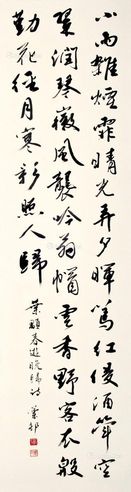 小雨雜煙霏晴光弄夕暉蔫紅侵酒斝空
翠潤琴徽風襲吟翁帽雲香野客衣殷
勤花徑月寒彩照人歸
葉顒春遊晚歸詩